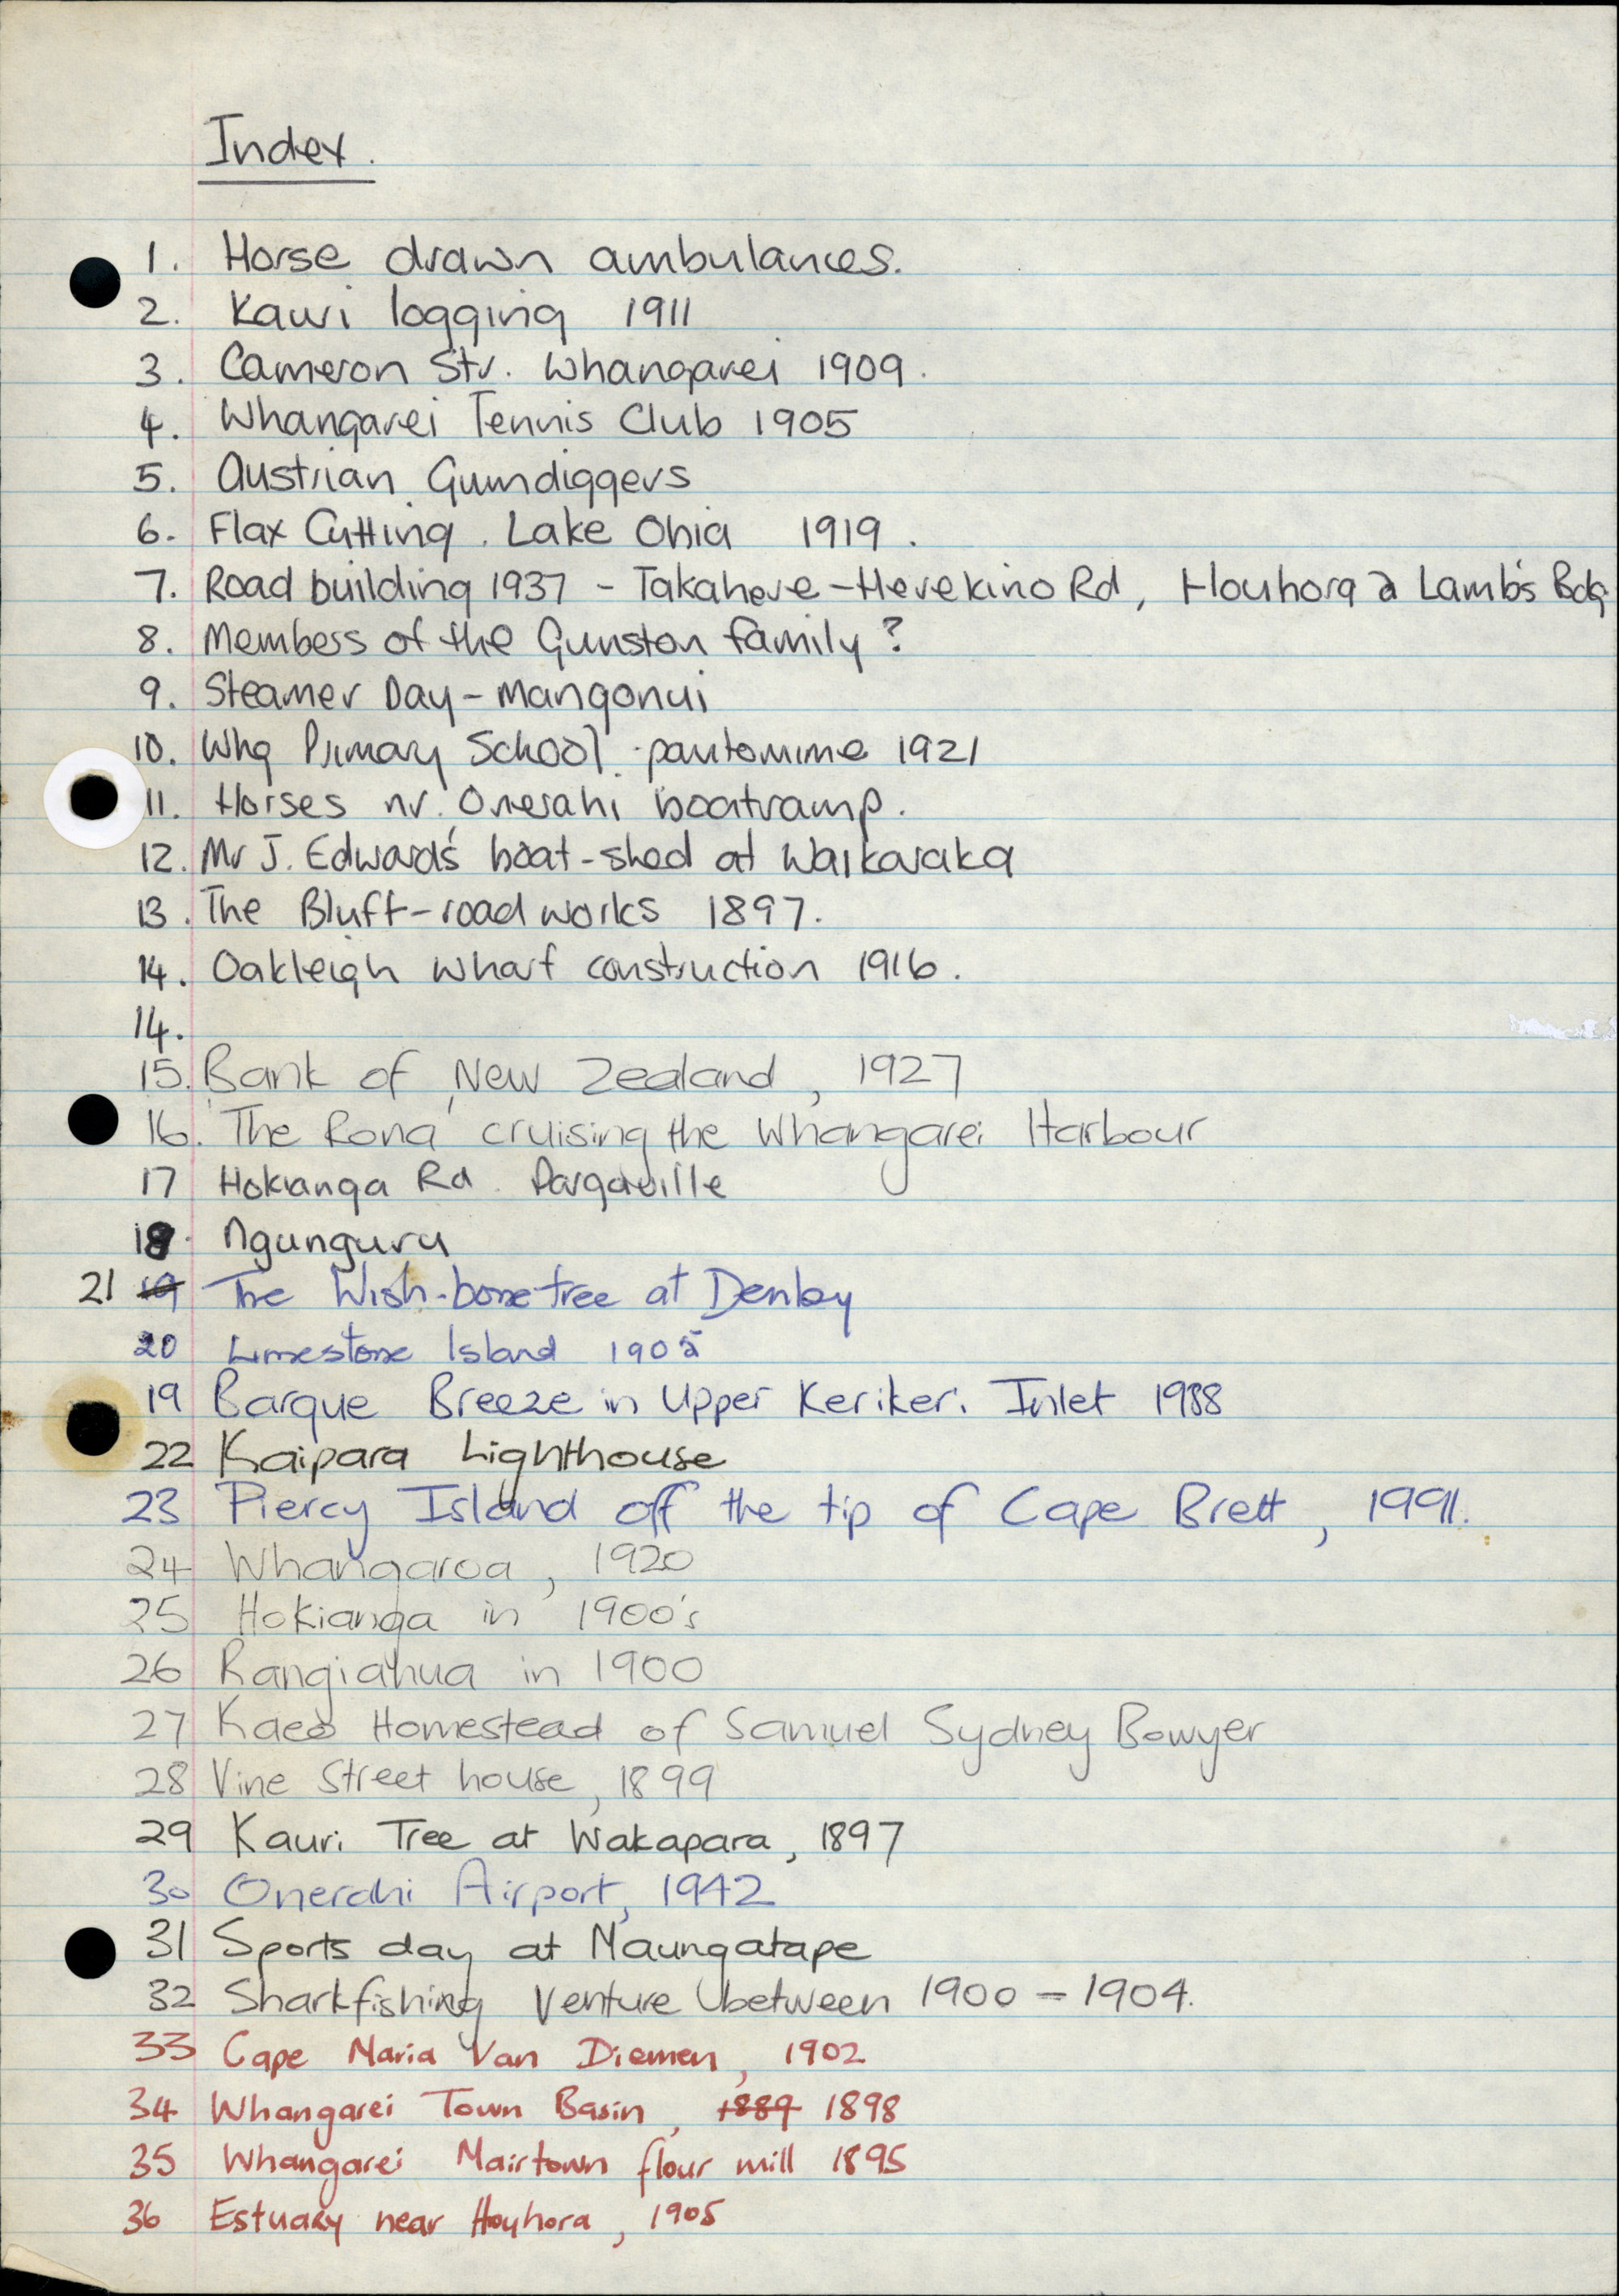 Index.
1. Horse drawn ambulances.
2. Kauri logging 1911
3. Cameron Str. Whangarei 1909.
4. Whangarei Tennis Club 1905
5. Austrian Gumdiggers
6. Flax Cutting. Lake Ohia 1919.
7. Road building 1937 - Takahere-Herekino Rd, Houhora & Lamb's Bdg
8. Members of the Gunston family?
9. Steamer Day - Mangonui
10. Whg Primary School. pantomime 1921
11. Horses nr. Onerahi boatramp.
12. Mr J. Edward's boat-shed at Waikaraka
13. The Bluff-road works 1897.
14. Oakleigh wharf construction 1916.
14.
15. Bank of New Zealand, 1927
16. 'The Rona' cruising the Whangarei Harbour
17 Hokianga Rd. Dargaville
18. Ngunguru
21 19 The Wish-bone tree at Denby
20 Limestone Island 1905
19 Barque Breeze in Upper Kerikeri Inlet 1988
22 Kaipara Lighthouse
23 Piercy Island off the tip of Cape Brett, 1991.
24 Whangaroa, 1920
25 Hokianga in 1900's
26 Rangiahua in 1900
27 Kaeo Homestead of Samuel Sydney Bowyer
28 Vine Street house, 1899
29 Kauri Tree at Wakapara, 1897
30 Onerahi Airport, 1942
31 Sports day at Maungatape
32 Sharkfishing Venture between 1900 - 1904.
33 Cape Maria Van Diemen, 1902
34 Whangarei Town Basin, 1889 1898
35 Whangarei Mairtown flour mill 1895
36 Estuary near Houhora, 1905